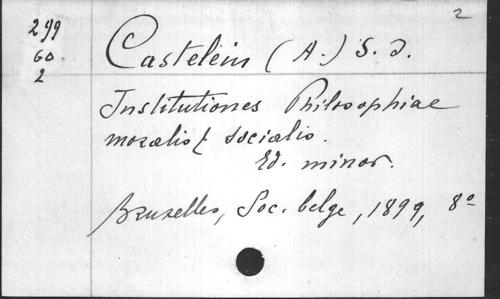 2
299
60
2
Castelein (A.) S. J.
Institutiones Philosophiae
moralis & socialis.
Ed. minor.
Bruxelles, Soc. belge, 1899, 8º